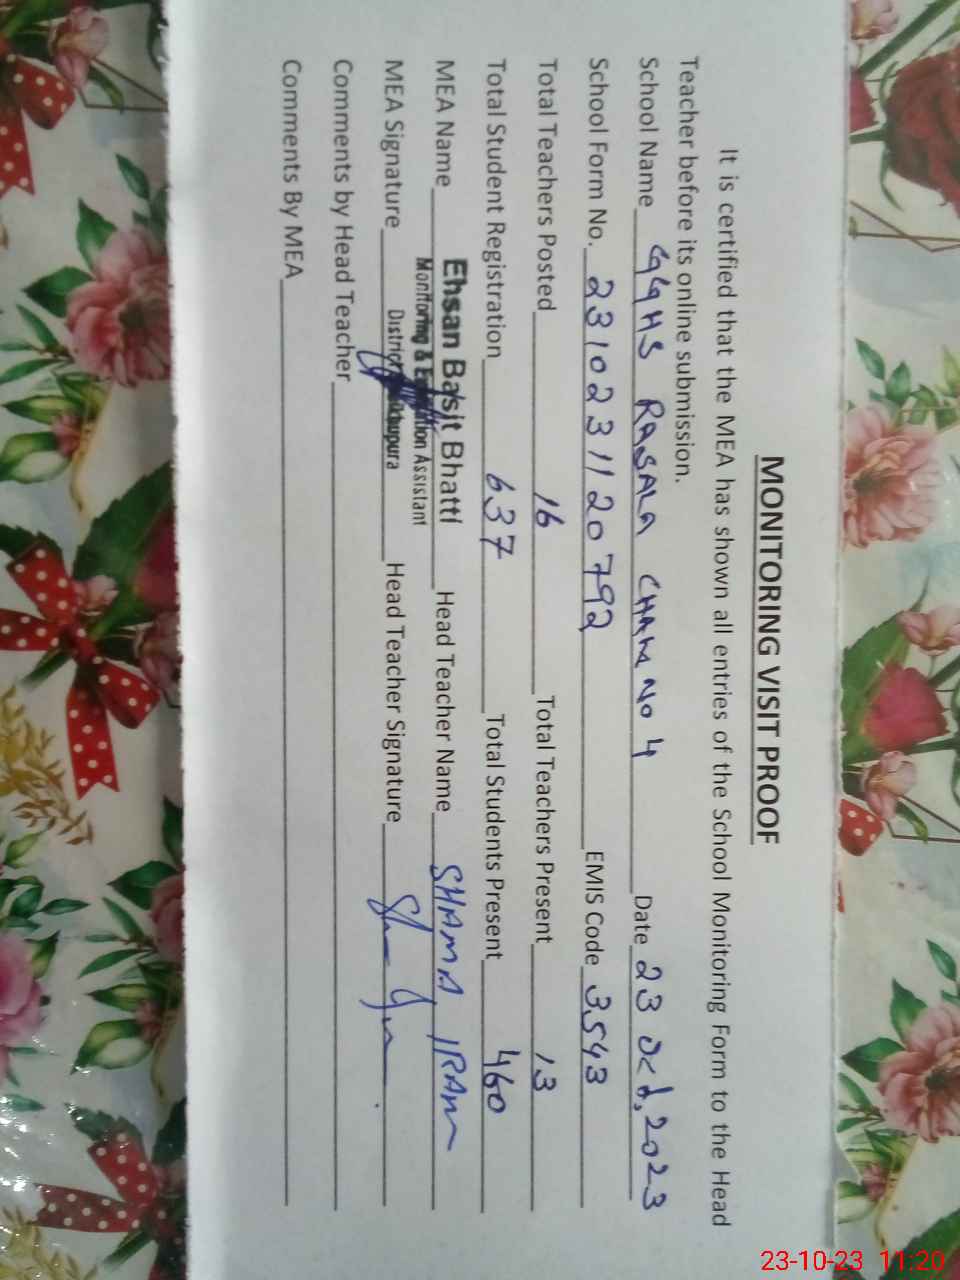 MONITORING VISIT PROOF
It is certified that the MEA has shown all entries of the School Monitoring Form to the Head
Teacher before its online submission.
School Name GGHS RASALA CHAK NO 4 Date 23 Oct, 2023
School Form No. 2310231120792 EMIS Code 3543
Total Teachers Posted 16 Total Teachers Present 13
Total Student Registration 637 Total Students Present 460
MEA Name Ehsan Basit Bhatti Head Teacher Name SHAMA IRAM
Monitoring & Assistant
MEA Signature District Head Teacher Signature
Comments by Head Teacher
Comments By MEA
23-10-23 11:20